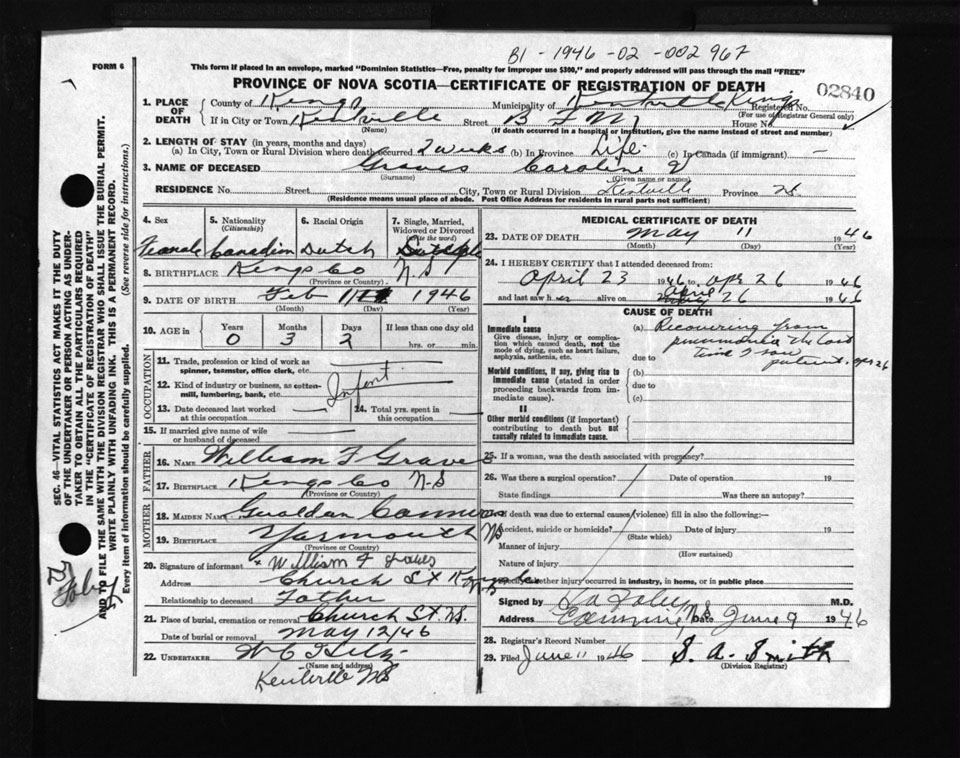 B1 - 1946 - 02 - 002 967
FORM 6
This form if placed in an envelope, marked "Dominion Statistics—Free, penalty for improper use $300," and properly addressed will pass through the mail "FREE"
PROVINCE OF NOVA SCOTIA—CERTIFICATE OF REGISTRATION OF DEATH
02840
1. PLACE OF DEATH
County of Kings Municipality of Kentville Kings Registered No.
(For use of Registrar General only)
If in City or Town Kentville Street B F M House No.
(Name) (If death occurred in a hospital or institution, give the name instead of street and number)
2. LENGTH OF STAY (in years, months and days)
(a) In City, Town or Rural Division where death occurred 2 weeks (b) In Province Life (c) In Canada (if immigrant) —
3. NAME OF DECEASED Graves Carolin
(Surname) (Given name or names)
RESIDENCE No. Street City, Town or Rural Division Kentville Province NS
(Residence means usual place of abode. Post Office Address for residents in rural parts not sufficient)
4. Sex
Female
5. Nationality
(Citizenship)
Canadian
6. Racial Origin
Dutch
7. Single, Married, Widowed or Divorced
(write the word)
Single
8. BIRTHPLACE Kings Co N-S
(Province or Country)
9. DATE OF BIRTH Feb 1946
(Month) (Day) (Year)
10. AGE in
Years Months Days If less than one day old
0 3 2 hrs. or min.
OCCUPATION
11. Trade, profession or kind of work as spinner, teamster, office clerk, etc. —
12. Kind of industry or business, as cotten-mill, lumbering, bank, etc. Infant
13. Date deceased last worked at this occupation — 14. Total yrs. spent in this occupation
15. If married give name of wife or husband of deceased
FATHER
16. NAME William F Graves
17. BIRTHPLACE Kings Co N-S
(Province or Country)
MOTHER
18. MAIDEN NAME
19. BIRTHPLACE Yarmouth NS
(Province or Country)
20. Signature of informant x William F
Address Church St
Relationship to deceased Father
21. Place of burial, cremation or removal Church St. NS.
Date of burial or removal May 12/46
22. UNDERTAKER
(Name and address)
Kentville NS
MEDICAL CERTIFICATE OF DEATH
23. DATE OF DEATH May 11 1946
(Month) (Day) (Year)
24. I HEREBY CERTIFY that I attended deceased from:
April 23 1946 to Apr 26 1946
and last saw her alive on April 26 1946
CAUSE OF DEATH
I
Immediate cause
Give disease, injury or complication which caused death, not the mode of dying, such as heart failure, asphyxia, asthenia, etc.
(a) Recovering from
pneumonia the last
due to time I saw
patient. Apr 26
Morbid conditions, if any, giving rise to immediate cause (stated in order proceeding backwards from immediate cause).
(b)
due to
(c)
II
Other morbid conditions (if important) contributing to death but not causally related to immediate cause.
25. If a woman, was the death associated with pregnancy?
26. Was there a surgical operation? Date of operation 19
State findings Was there an autopsy?
If death was due to external causes (violence) fill in also the following:—
Accident, suicide or homicide? Date of injury 19
(State which)
Manner of injury
(How sustained)
Nature of injury
Specify whether injury occurred in industry, in home, or in public place
Signed by Foley M.D.
Address Canning NS Date June 9 1946
28. Registrar's Record Number
29. Filed June 11 1946 S. A. Smith
(Division Registrar)
SEC. 46—VITAL STATISTICS ACT MAKES IT THE DUTY OF THE UNDERTAKER OR PERSON ACTING AS UNDERTAKER TO OBTAIN ALL THE PARTICULARS REQUIRED IN THE "CERTIFICATE OF REGISTRATION OF DEATH" AND TO FILE THE SAME WITH THE DIVISION REGISTRAR WHO SHALL ISSUE THE BURIAL PERMIT.
WRITE PLAINLY WITH UNFADING INK. THIS IS A PERMANENT RECORD.
Every item of information should be carefully supplied. (See reverse side for instructions.)
Foley